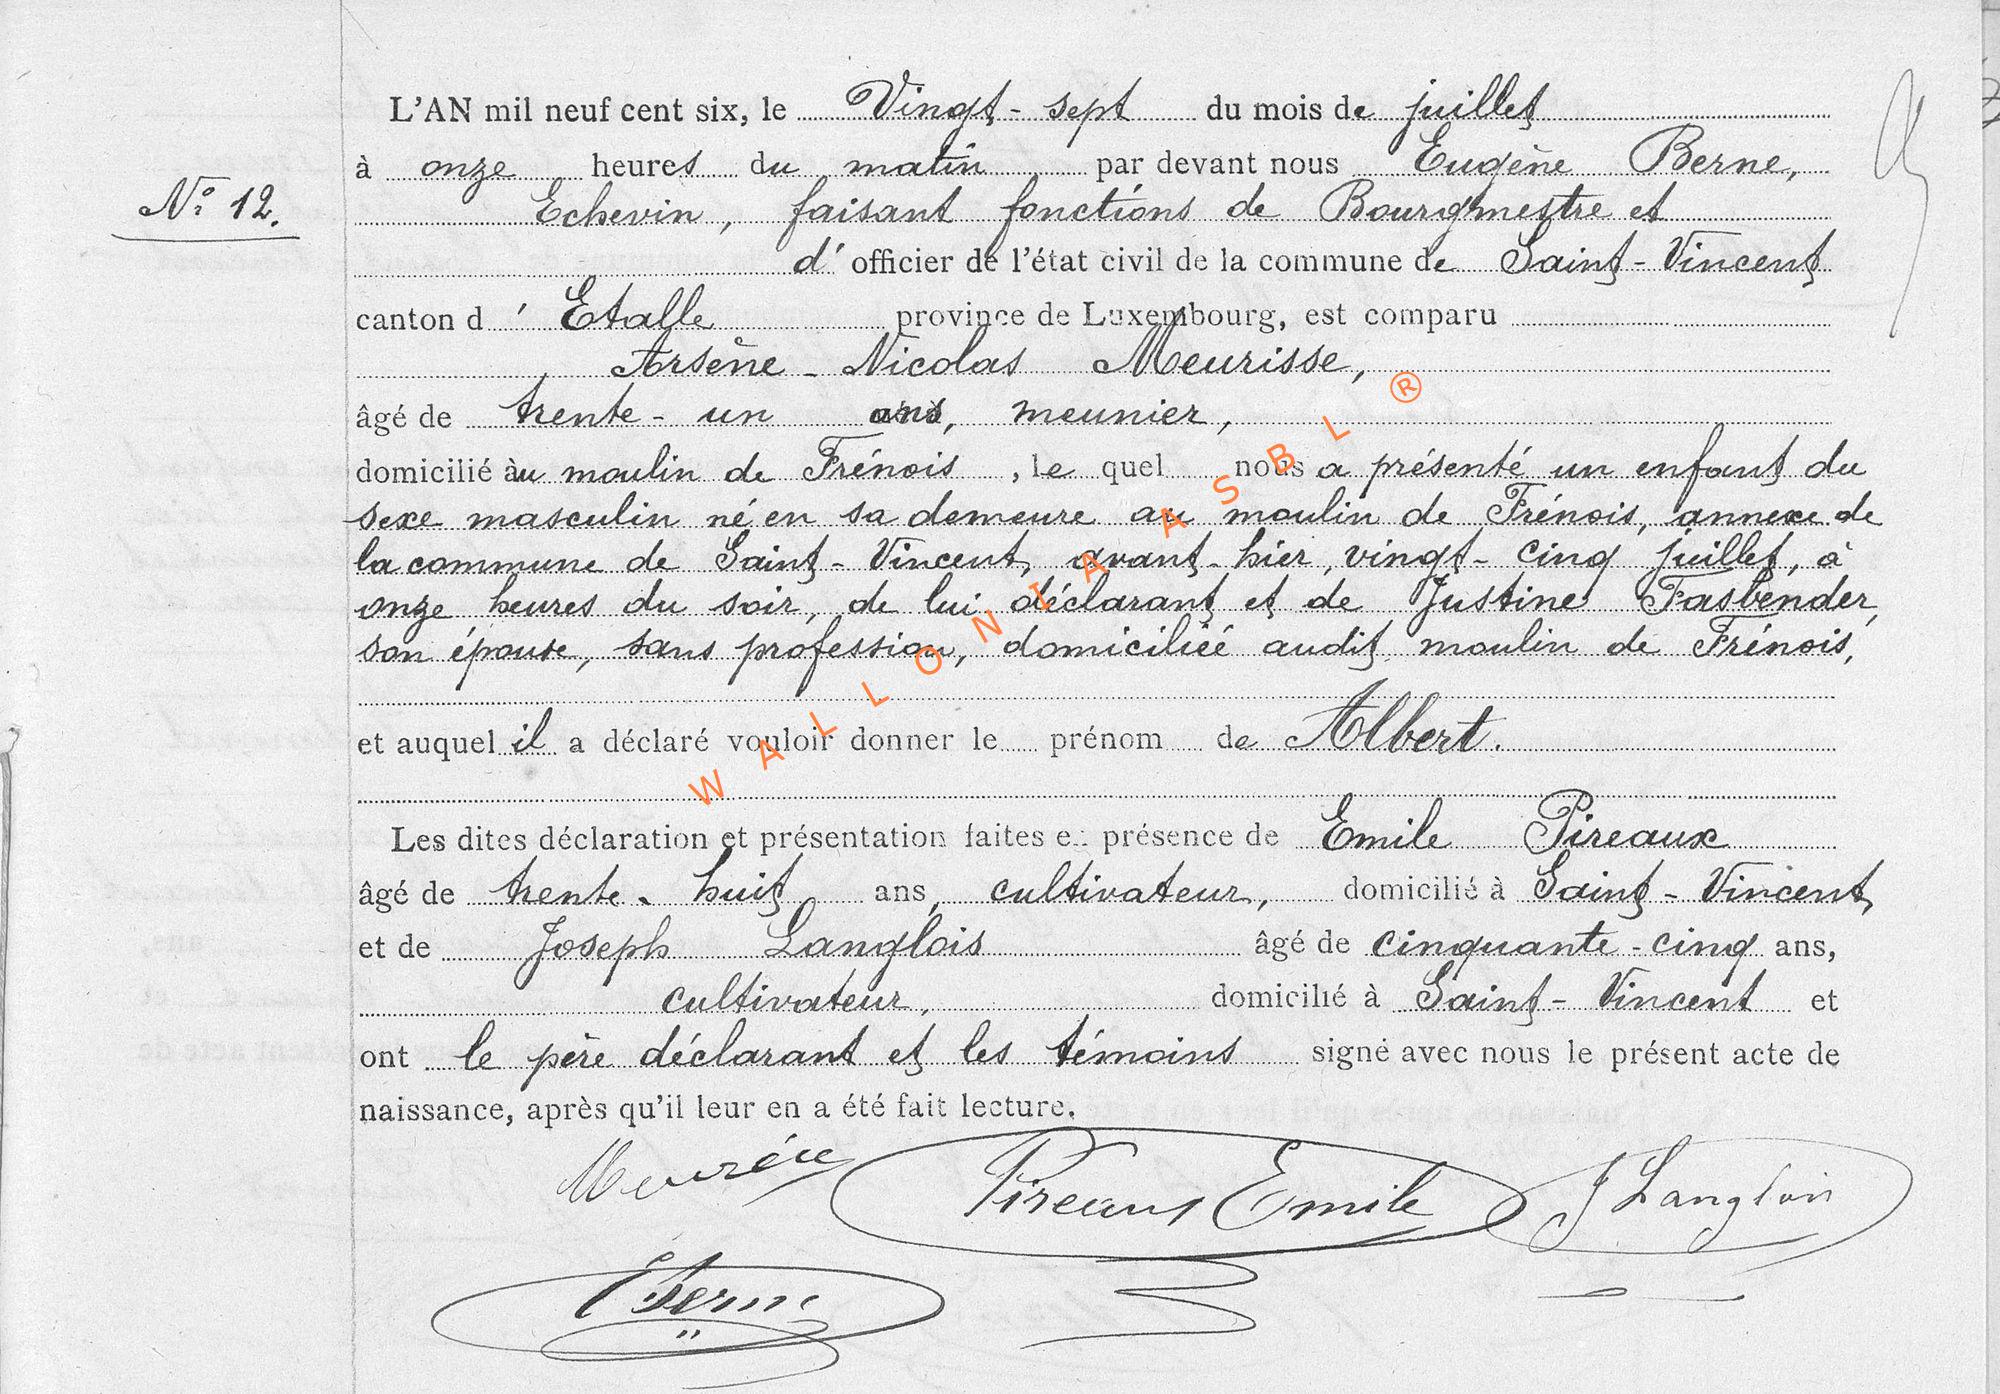 N° 12.
L'AN mil neuf cent six, le Vingt-sept du mois de juillet
à onze heures du matin par devant nous Eugène Berne,
Echevin, faisant fonctions de Bourgmestre et
d' officier de l'état civil de la commune de Saint-Vincent
canton d ' Etalle province de Luxembourg, est comparu
Arsène-Nicolas Meurisse,
âgé de trente-un ans, meunier,
domicilié àu moulin de Frénois, le quel nous a présenté un enfant du
sexe masculin né en sa demeure au moulin de Frénois, annexe de
la commune de Saint-Vincent, avant-hier, vingt-cinq juillet, à
onze heures du soir, de lui déclarant et de Justine Fasbender,
son épouse, sans profession, domiciliée audit moulin de Frénois,
et auquel il a déclaré vouloir donner le prénom de Albert.
Les dites déclaration et présentation faites e. présence de Emile Pireaux
âgé de trente-huit ans, cultivateur, domicilié à Saint-Vincent,
et de Joseph Langlois âgé de cinquante-cinq ans,
cultivateur, domicilié à Saint-Vincent et
ont le père déclarant et les témoins signé avec nous le présent acte de
naissance, après qu'il leur en a été fait lecture.
Pireaux Emile J Langlois
E Berne
WALLONIA ASBL ®